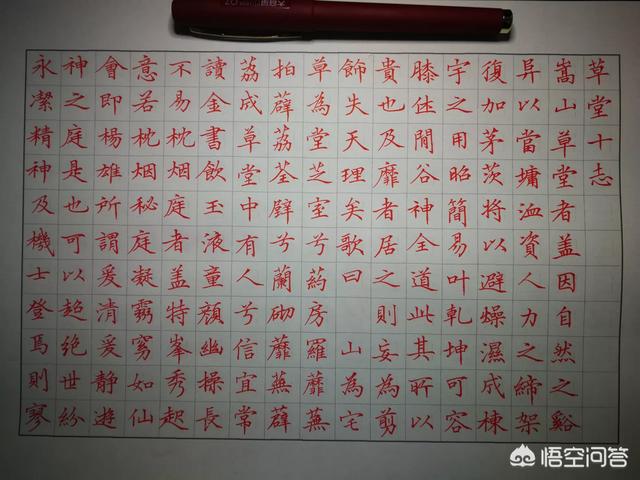 草堂十志
嵩山草堂者盖因自然之谿
异以當墉洫資人力之締架
復加茅茨將以避燥濕成棟
宇之用昭簡易叶乾坤可容
膝休閒谷神全道此其所以
貴也及靡者居之則妄為剪
飾失天理矣歌曰 山為宅
草為堂芝室兮葯房羅蘼蕪
拍薜荔荃壁兮蘭砌蘼蕪薜
荔成草堂中有人兮信宜常
讀金書飲玉液童顏幽操長
不易枕烟庭者盖特峯秀起
意若枕烟秘庭凝霧窈如仙
會即楊雄所謂爰清爰靜遊
神之庭是也可以超絶世紛
永潔精神及機士登焉則寥
悟空问答